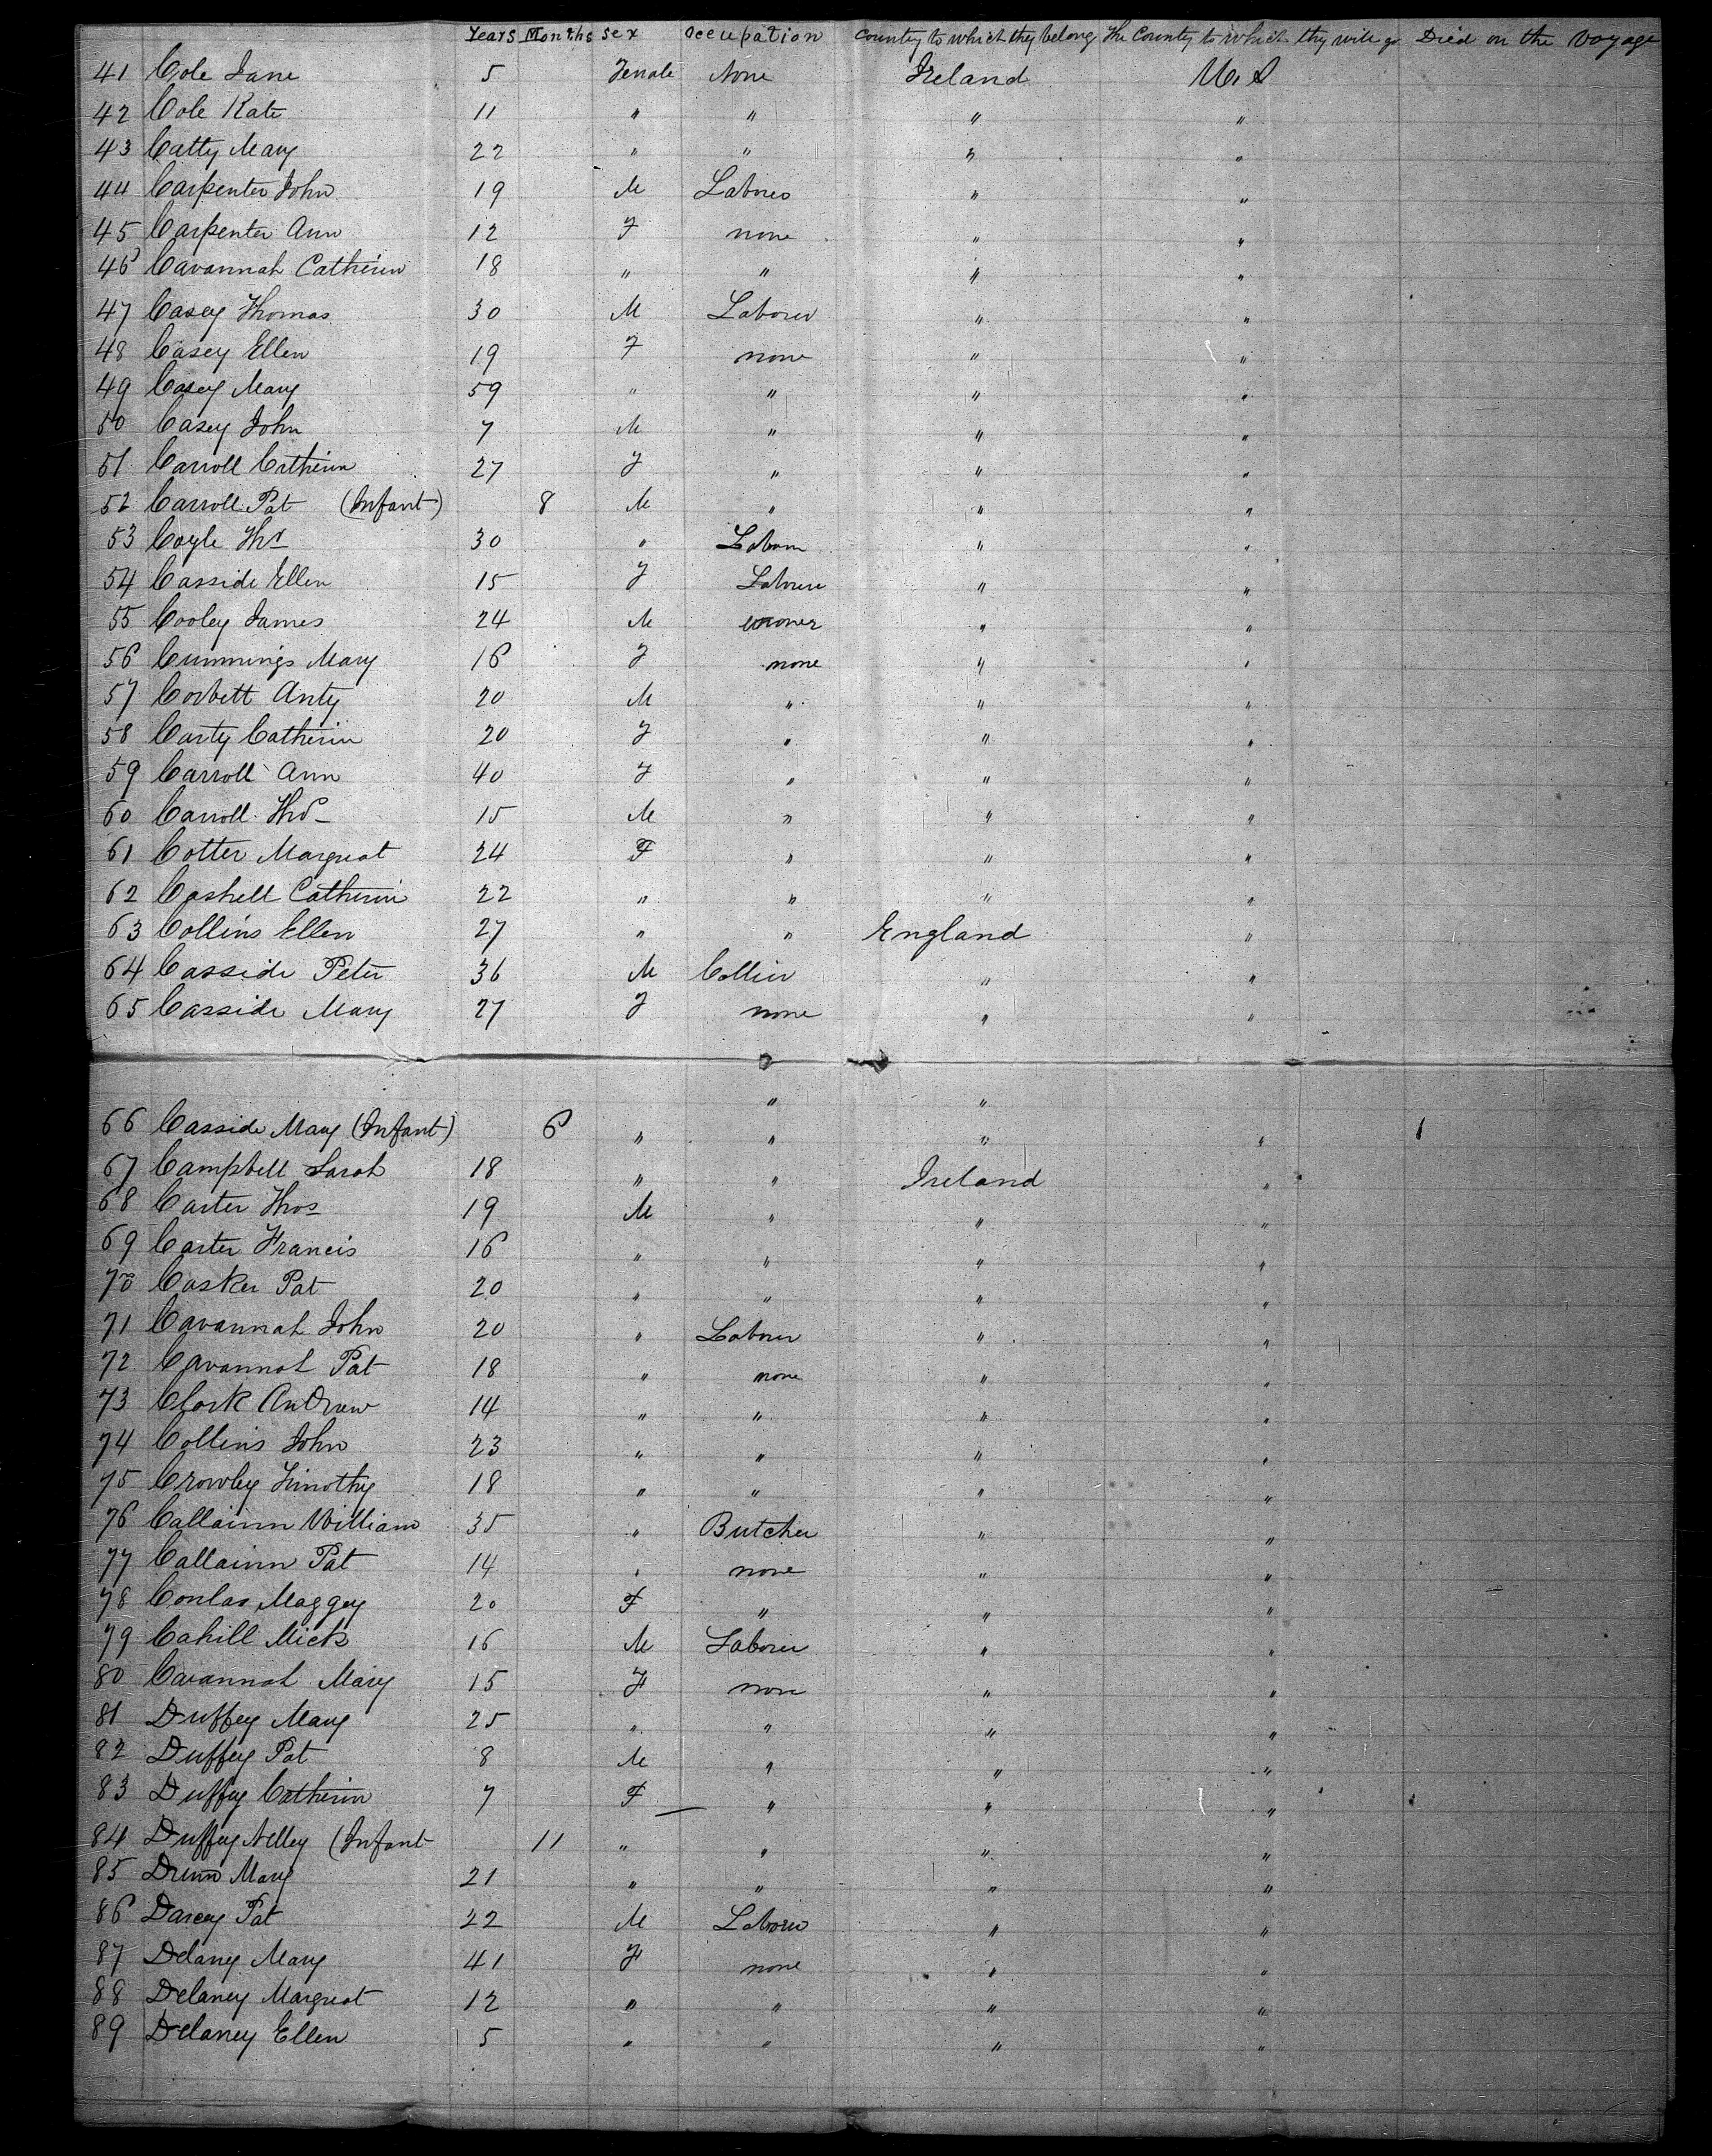 Years Months Sex Occupation Country to which they belong The County to which they will go Died on the Voyage
41 Cole Jane 5 Female None Ireland U. S
42 Cole Kate 11 " " " "
43 Catty Mary 22 " " " "
44 Carpenter John 19 M Laborer " "
45 Carpenter Ann 12 F none " "
46 Cavannah Catherin 18 " " " "
47 Casey Thomas 30 M Laborer " "
48 Casey Ellen 19 F none " "
49 Casey Mary 59 " " " "
50 Casey John 7 M " " "
51 Carroll Catherin 27 F " " "
52 Carroll Pat (Infant) 8 M " " "
53 Coyle Thos 30 " Laborer " "
54 Casside Ellen 15 F Laborer " "
55 Cooley James 24 M " "
56 Cummings Mary 16 F none " "
57 Corbett Anty 20 M " " "
58 Carty Catherin 20 F " " "
59 Carroll Ann 40 F " " "
60 Carroll Thos 15 M " " "
61 Cotter Margreat 24 F " " "
62 Cashell Catherin 22 " " " "
63 Collins Ellen 27 " " England "
64 Casside Peter 36 M Collier " "
65 Casside Mary 27 F none " "
" "
66 Casside Mary (Infant) 6 " " " " 1
67 Campbell Sarah 18 " " Ireland "
68 Carter Thos 19 M " " "
69 Carter Francis 16 " " " "
70 Casker Pat 20 " " " "
71 Cavannah John 20 " Laborer " "
72 Cavannah Pat 18 " none " "
73 Clark Andrew 14 " " " "
74 Collins John 23 " " " "
75 Crowley Timothy 18 " " " "
76 Callainn William 35 " Butcher " "
77 Callainn Pat 14 " none " "
78 Conlan Maggey 20 F " " "
79 Cahill Mick 16 M Laborer " "
80 Cavannah Mary 15 F none " "
81 Duffey Mary 25 " " " "
82 Duffey Pat 8 M " " "
83 Duffey Catherin 7 F " " "
84 Duffey Nelley (Infant 11 " " " "
85 Dunn Mary 21 " " " "
86 Darcey Pat 22 M Laborer " "
87 Delaney Mary 41 F none " "
88 Delaney Margreat 12 " " " "
89 Delaney Ellen 5 " " " "